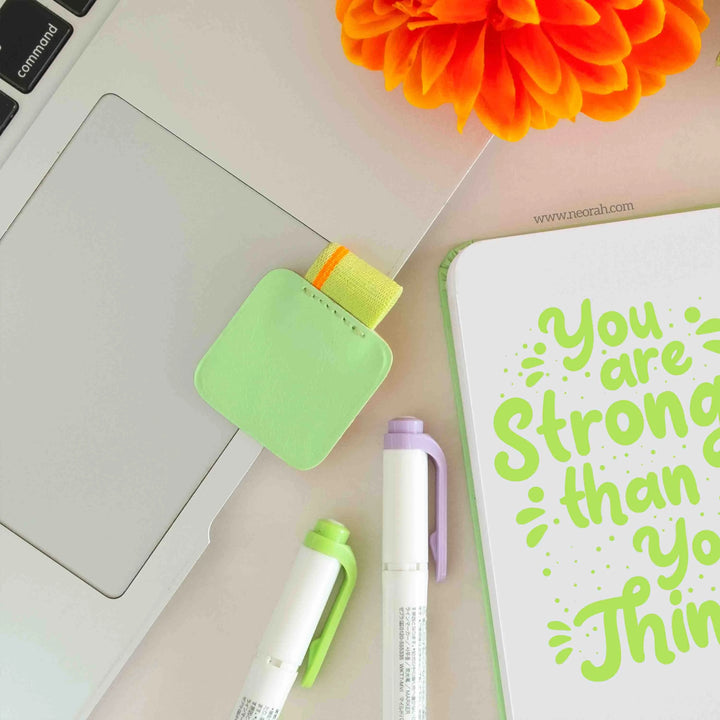 command
www.neorah.com
You
are
Strong
than
Yo
Thin